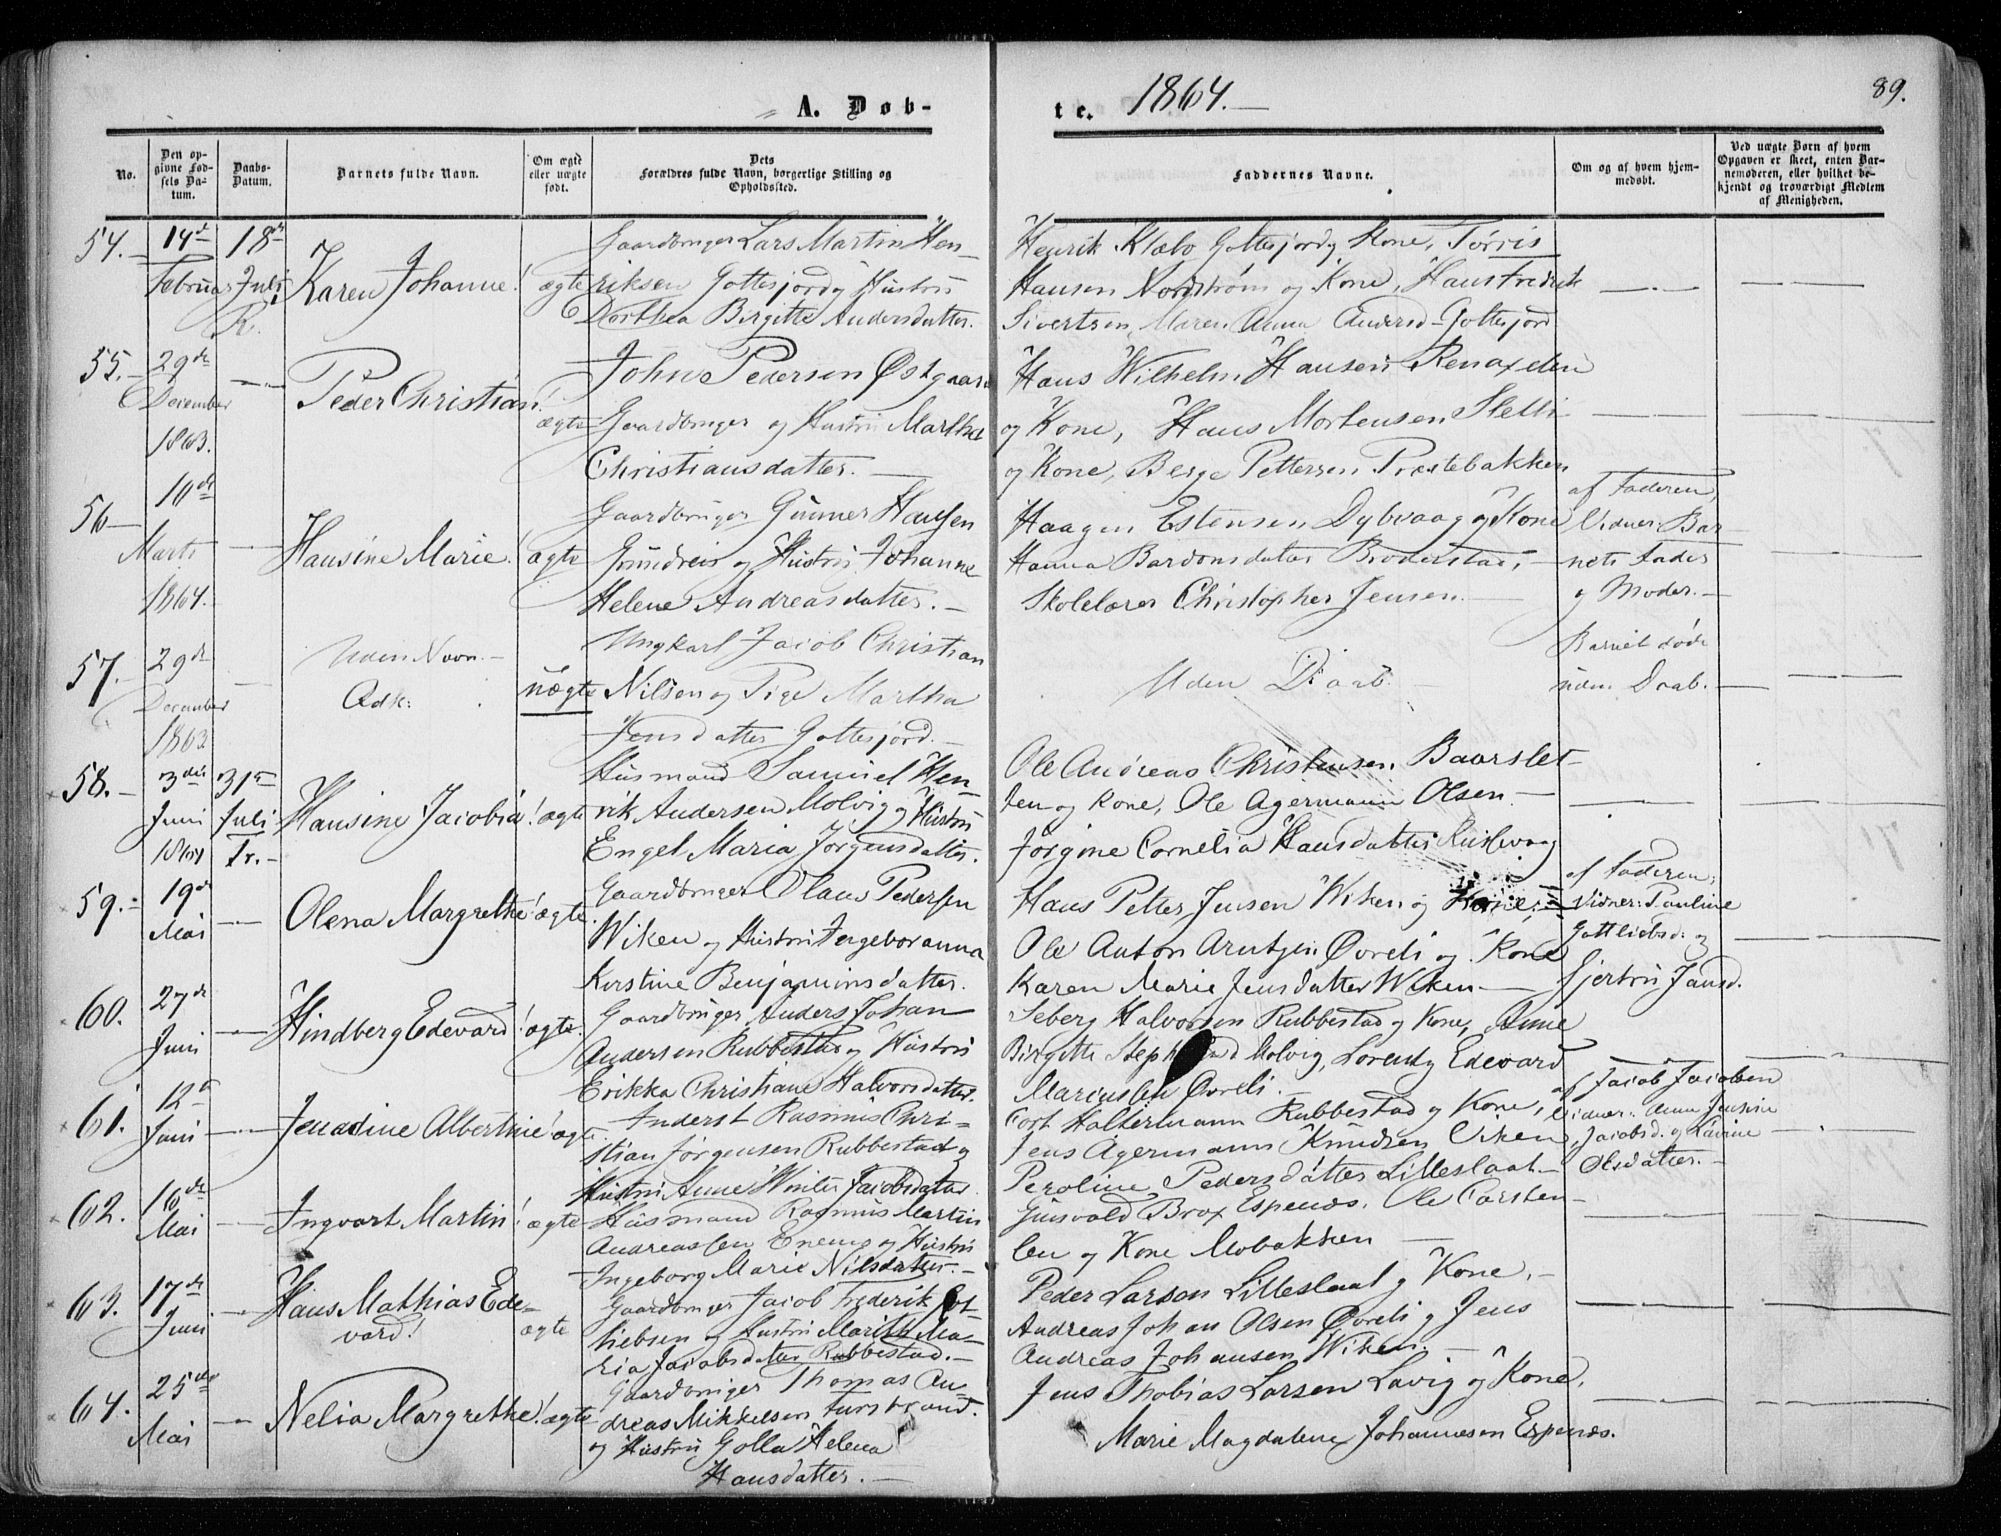 A. Døb-
te. 1864.
89.
No.
Den op-
givne Fød-
sels Da-
tum.
Daabs-
Datum.
Barnets fulde Navn.
Om ægte
eller uægte
født.
Dets
Forældres fulde Navn, borgerlige Stilling og
Opholdssted.
Faddernes Navne.
Om og af hvem hjem-
medøbt.
Ved uægte Børn af hvem
Opgaven er skeet, enten Bar-
nemoderen, eller hvilket be-
kjendt og troværdigt Medlem
af Menigheden.
54.
14de
Februar
18de
Juli
Karen Johanne!
ægte
Gaardbruger Lars Martin Hen-
riksen Gottesjord og Hustru
Dorthea Birgitte Andersdatter.
Henrik Klæbo Gottesjord og Kone,
Hansen Nordstrøm og Kone, Hans Fredrik
Sivertsen, Maren Anna Andersd. Gottesjord
55.
29de
December
1863.
Peder Christian!
ægte
John Pedersen Østgaard
Gaardbruger og Hustru Martha
Christiansdatter.
Hans Wilhelm Hansen Renaxelen
og Kone, Hans Mortensen Sletli
og Kone, Berge Pettersen Præstebakken
56
10de
Marts
1864.
Hansine Marie!
ægte
Gaardbruger Gunner Hansen
Grundreis og Hustru Johanne
Helene Andreasdatter.
Haagen Estensen Dybvaag og Kone
Hanna Bardonsdatter Broderstad,
Skolelærer Christopher Jensen.
af Faderen,
Vidner: Bar
nets Fader
og Moder.
57.
29de
December
1863
Uden Navn.
Qdk:
uægte
Ungkarl Jacob Christian
Nilsen og Pige Martha
Jensdatter Gottesjord.
Uden Daab.
Barnet døde
uden Daab.
58.
3die
Juni
1864
31te
Juli
Tr.
Hansine Jacobia!
ægte
Husmand Samuel Hen-
rik Andersen Molvig og Hustru
Engel Maria Jørgensdatter.
Ole Andreas Christensen Baarslet-
ten og Kone, Ole Agermann Olsen
Jørgine Cornelia Hansdatter
59.
19de
Mai
Olena Margrethe!
ægte.
Gaardbruger Olaus Pedersen
Wiken og Hustru Ingeboranna
Kirstine Benjaminsdatter.
Hans Petter Jensen Wiken og Kone,
Ole Anton Arntzen Øvreli og Kone
Karen Marie Jensdatter Wiken
af Faderen,
Vidner: Pauline
Gottliebsd. og
Gjertru Jansd.
60.
27de
Juni
Hindberg Edevard!
ægte.
Gaardbruger Anders Johan
Andersen Rubbestad og Hustru
Erikka Christiane Halvorsdatter.
Seberg Halvorsen Rubbestad og Kone, Anne
Birgitte Molvig, Lorentz Edevard
Mariussen Øvreli.
61.
12te
Juni
Jenadine Albertine!
ægte.
Inderst Rasmus Chri-
stian Jørgensen Rubbestad og
Hustru Anne Winter Jacobsdatter
Cort Haltermann Rubbestad og Kone,
Jens Agermann Knudsen Viken,
Peroline Pedersdatter Lilleslaat
af Jacob Jacobsen
Vidner: Anna
Jacobsd. og Lavine
Olsdatter.
62.
16de
Mai
Ingvart Martin!
ægte
Husmand Rasmus Martin
Andreassen Enemo og Hustru
Ingeborg Marie Nilsdatter.
Gunvald Brox Espenæs, Ole Carsten-
sen og Kone Mobakken
63.
17de
Juni
Hans Mathias Ede-
vard!
ægte
Gaardbruger Jacob Frederik Got-
liebsen og Hustru Marith Ma-
ria Jacobsdatter Rubbestad.
Peder Larsen Lilleslaat og Kone,
Andreas Johan Olsen Øvreli og Jens
Andreas Johansen Wiken.
64.
25de
Mai
Nelia Margrethe!
ægte
Gaardbruger Thomas An-
dreas Mikkelsen Furstrand.
og Hustru Golla Helena
Hansdatter.
Jens Thobias Larsen Lavig og Kone,
Marie Magdalena Johannesen Espenæs.